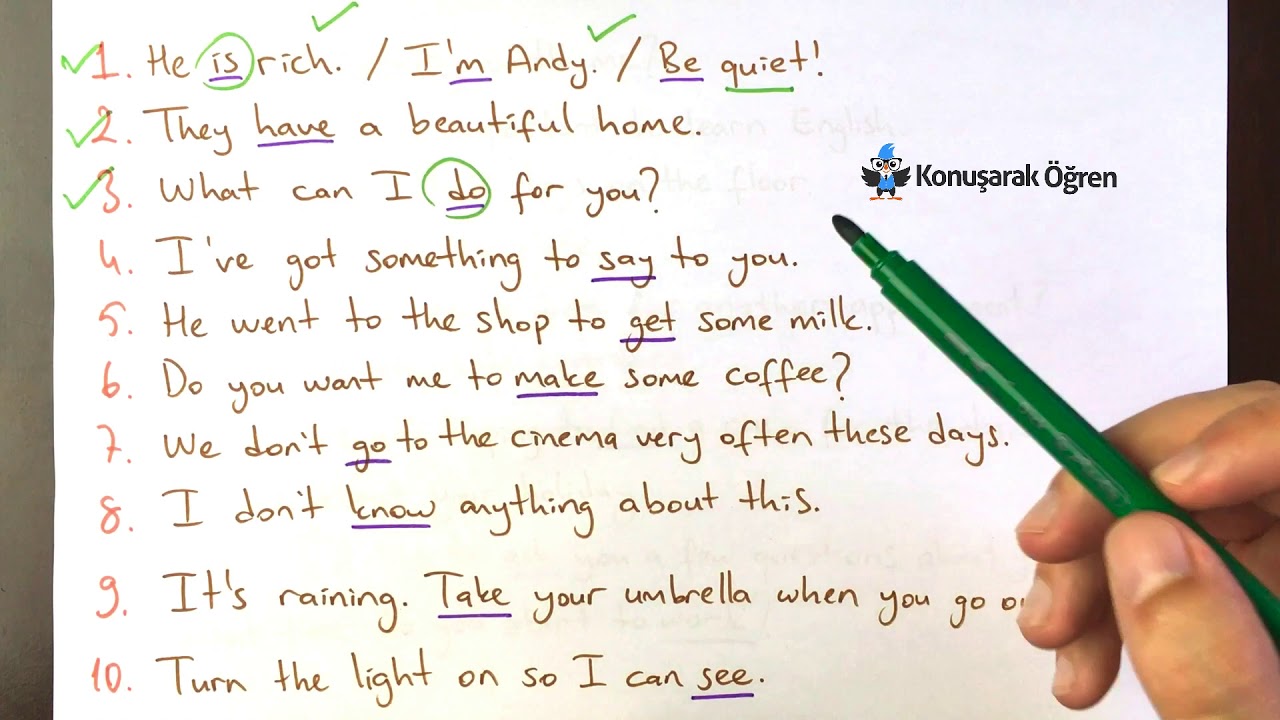 1. He is rich. / I'm Andy. / Be quiet!
2. They have a beautiful home.
3. What can I do for you?
Konuşarak Öğren
4. I've got something to say to you.
5. He went to the shop to get some milk.
6. Do you want me to make some coffee?
7. We don't go to the cinema very often these days.
8. I don't know anything about this.
9. It's raining. Take your umbrella when you go
10. Turn the light on so I can see.